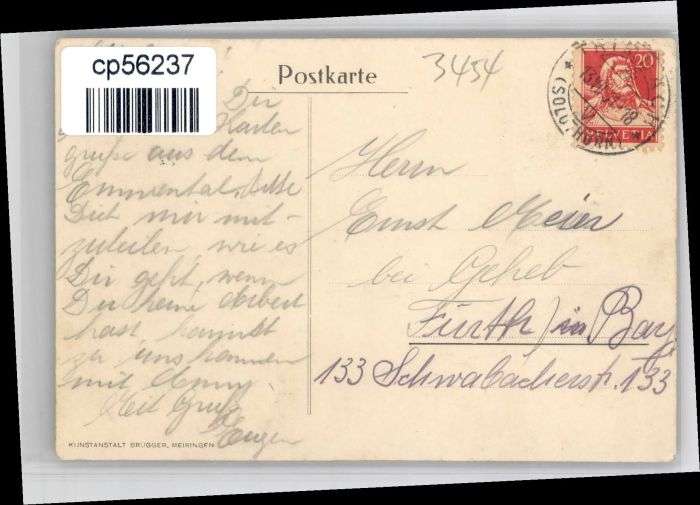 cp56237
Postkarte
3454
20
HELVETIA
(SOLOTHURN)
Dir
Karten
grüße aus dem
Emmental. Bitte
Dich mir mit-
zuteilen, wie es
Dir geht, wenn
Du keine Arbeit
hast kannst
zu uns kommen
mit Anny.
Mit Gruß
Eugen
Herrn
Ernst Meier
bei Geheb
Fürth) in Bay
133 Schwabacherstr. 133
KUNSTANSTALT BRÜGGER, MEIRINGEN